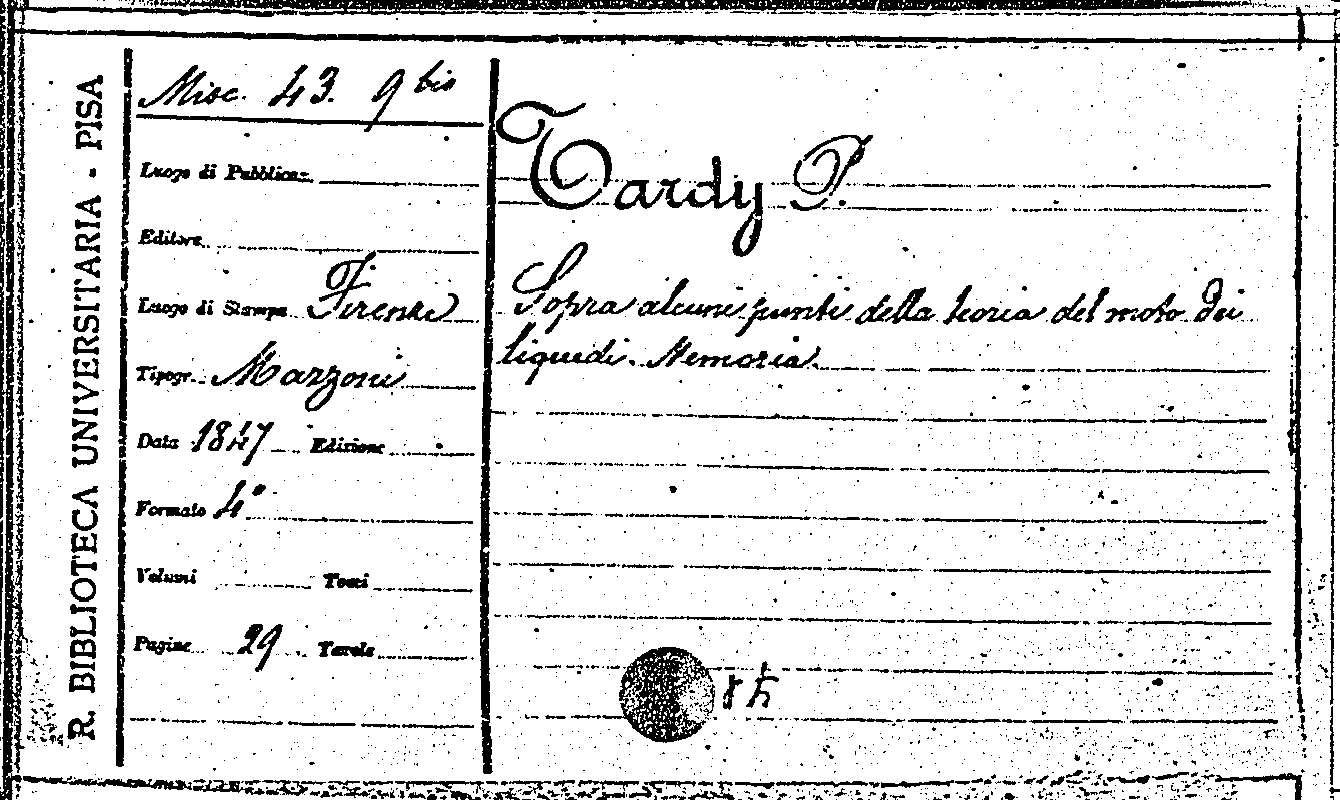 R. BIBLIOTECA UNIVERSITARIA - PISA
Misc. 43. 9 bis
Luogo di Pubblicaz.
Editore
Luogo di Stampa Firenze
Tipogr. Mazzoni
Data 1847 Edizione
Formato 4°
Volumi Tomi
Pagine 29 Tavole
Tardy P.
Sopra alcuni punti della teoria del moto dei
liquidi. Memoria.